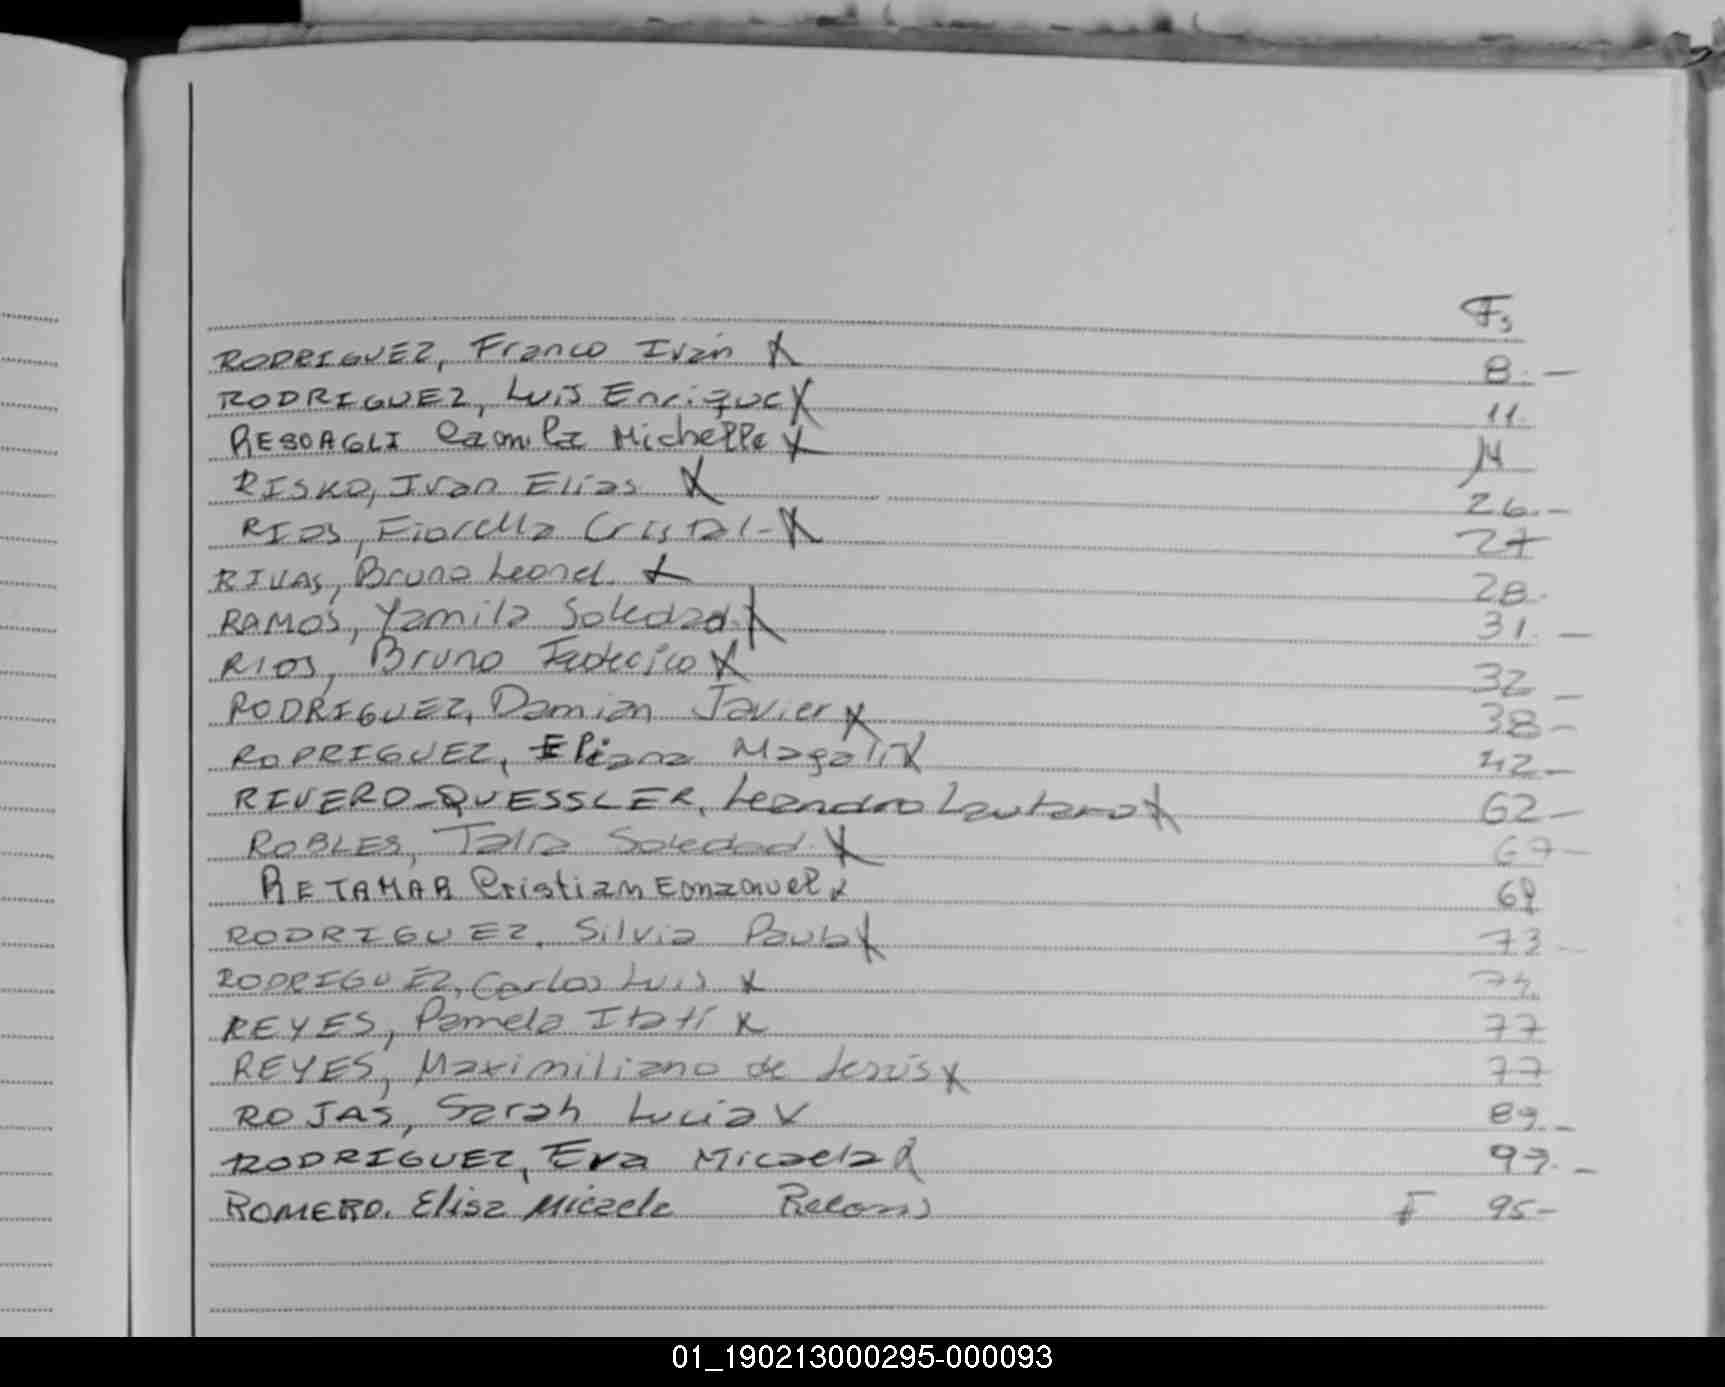 Fs
RODRIGUEZ, Franco Iván X 8.-
RODRIGUEZ, Luis Enrique X 11.
REBOAGLI Camila Michelle X 14
RISKO, Ivan Elias X 26.-
RIOS, Fiorella Cristal- X 27
RIVAS, Bruno Leonel. X 28.
RAMOS, Yamila Soledad. X 31.-
RIOS, Bruno Federico X 32 -
RODRIGUEZ, Damian Javier X 38-
RODRIGUEZ, Eliana Magali X 42-
RIVERO-QUESSLER, Leandro Lautaro X 62-
ROBLES, Talia Soledad. X 67-
RETAMAR Cristian Emmanuel. x 69
RODRIGUEZ, Silvia Paula X 73-
RODRIGUEZ, Carlos Luis X 74.
REYES, Pamela Itatí X 77
REYES, Maximiliano de Jesús X 77
ROJAS, Sarah Lucia X 89.-
RODRIGUEZ, Eva Micaela X
ROMERO. Elisa Micaela F 95-
01_190213000295-000093